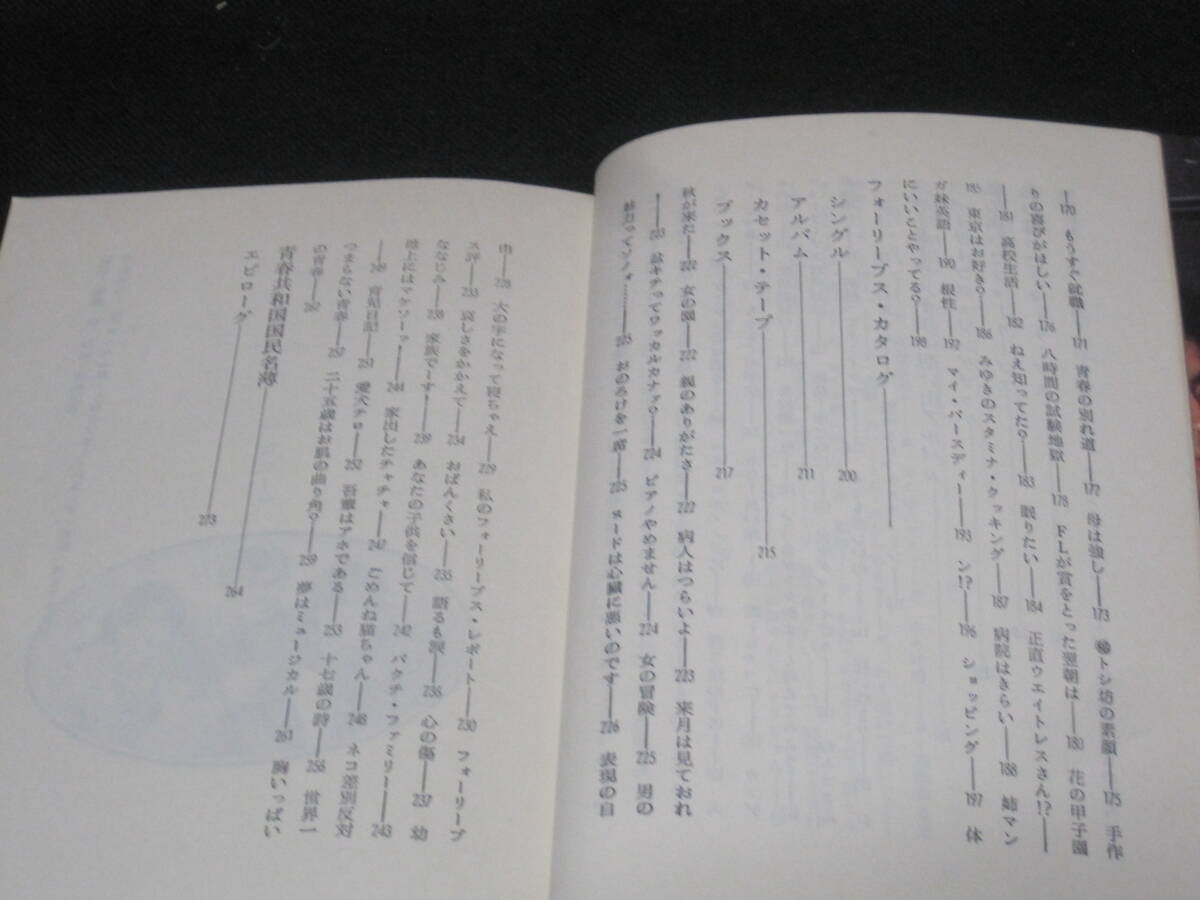 ―170 もうすぐ就職―171 青春の別れ道―172 母は強し―173 ㊙トシ坊の素顔―175 手作
りの喜びがほしい―176 八時間の試験地獄―178 FLが賞をとった翌朝は―180 花の甲子園
―181 高校生活―182 ねえ知ってた?―183 眠りたい―184 正直ウエイトレスさん!?―
185 東京はお好き?―186 みゆきのスタミナ・クッキング―187 病院はきらい―188 姉マン
ガ妹英語―190 根性―192 マイ・バースディー―193 ン!?―196 ショッピング―197 体
にいいことやってる?―198
フォーリーブス・カタログ―
シングル―200
アルバム―211
カセット・テープ―215
ブックス―217
秋が来た―222 女の園―222 親のありがたさ―222 病人はつらいよ―223 来月は見ておれ
―223 盆キチってワッカルカナァ?―224 ピアノやめません―224 女の冒険―225 男の
ってソノォ……―225 おのろけを一席―225 ヌードは心臓に悪いのです―226 表現の自
由―228 大の字になって寝ちゃえ―229 私のフォーリーブス・レポート―230 フォーリーブ
ス評―233 哀しさをかかえて―234 おばんくさい―235 語るも涙―236 心の傷―237 幼
ななじみ―238 家族でーす・―239 あなたの子供を信じて―242 バクチ・ファミリー―243
地上にはマケソーッ・―244 家出したチャチャ―247 ごめんね猫ちゃん―248 ネコ差別反対
―249 育児日記―251 愛犬チロ―252 吾輩はアホである―253 十七歳の詩―256 世界一
つまらない青春―257 二十五歳はお肌の曲り角?―259 夢はミュージカル―261 胸いっぱい
の青春―262
青春共和国国民名簿―264
エピローグ―273